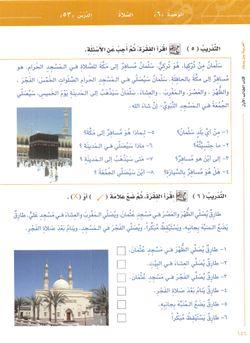 الوَحْدَة (٦) الصَّلَاة الدَّرْس (٥٣)
التَّدْرِيبُ ( ٥ ) اِقْرَأِ الفِقْرَةَ، ثُمَّ أَجِبْ عَنِ الأَسْئِلَة.
سَلْمَانُ مِنْ تُرْكِيَا، هُوَ تُرْكِيٌّ. سَلْمَانُ مُسَافِرٌ إِلَى مَكَّةَ لِلصَّلَاةِ فِي الْمَسْجِدِ الحَرَامِ. هُوَ
مُسَافِرٌ إِلَى مَكَّةَ بِالحَافِلَةِ. سَلْمَانُ سَيُصَلِّي فِي الْمَسْجِدِ الحَرَامِ الصَّلَوَاتِ الخَمْسَ: الفَجْرَ ،
وَالظُّهْرَ، وَالعَصْرَ، وَالمَغْرِبَ، وَالعِشَاءَ. سَلْمَانُ سَيَذْهَبُ إِلَى المَدِينَةِ يَوْمَ الخَمِيسِ، وَسَيُصَلِّي
الجُمُعَةَ فِي الْمَسْجِدِ النَّبَوِيِّ، إِنْ شَاءَ اللهُ.
١- مِنْ أَيِّ بَلَدٍ سَلْمَانُ؟
٢- مَا جِنْسِيَّتُهُ؟
٣- إِلَى أَيْنَ هُوَ مُسَافِرٌ؟
٤- هَلْ هُوَ مُسَافِرٌ بِالسَّيَّارَةِ؟
٥- لِمَاذَا هُوَ مُسَافِرٌ إِلَى مَكَّةَ؟
٦- مَاذَا سَيُصَلِّي فِي
٧- مَتَى سَيَذْهَبُ إِلَى المَدِينَةِ ؟
٨- أَيْنَ سَيُصَلِّي الجُمُعَةَ ؟
التَّدْرِيبُ ( ٦ ) اِقْرَأِ الفِقْرَةَ، ثُمَّ ضَعْ عَلَامَةَ ( ✓ ) أَوْ (X).
طَارِقٌ يُصَلِّي الظُّهْرَ وَالعَصْرَ فِي مَسْجِدِ عُثْمَانَ، وَيُصَلِّي المَغْرِبَ وَالعِشَاءَ فِي مَسْجِدِ عَلِيٍّ. طَارِقٌ
يَضَعُ المُنَبِّهَ بِجَانِبِهِ، وَيَسْتَيْقِظُ مُبَكِّراً، وَيُصَلِّي الفَجْرَ فِي الْمَسْجِدِ، وَيَنَامُ بَعْدَ صَلَاةِ الفَجْرِ.
١- طَارِقٌ يُصَلِّي الظُّهْرَ فِي مَسْجِدِ عُثْمَانَ.
٢- طَارِقٌ يُصَلِّي العِشَاءَ فِي البَيْتِ.
٣- طَارِقٌ يُصَلِّي الفَجْرَ فِي مَسْجِدِ عُثْمَانَ.
٤- طَارِقٌ يَنَامُ بَعْدَ صَلَاةِ الفَجْرِ.
٥- طَارِقٌ يَضَعُ المُنَبِّهَ بِجَانِبِهِ.
٦- طَارِقٌ يَسْتَيْقِظُ مُبَكِّراً.
١٤٦